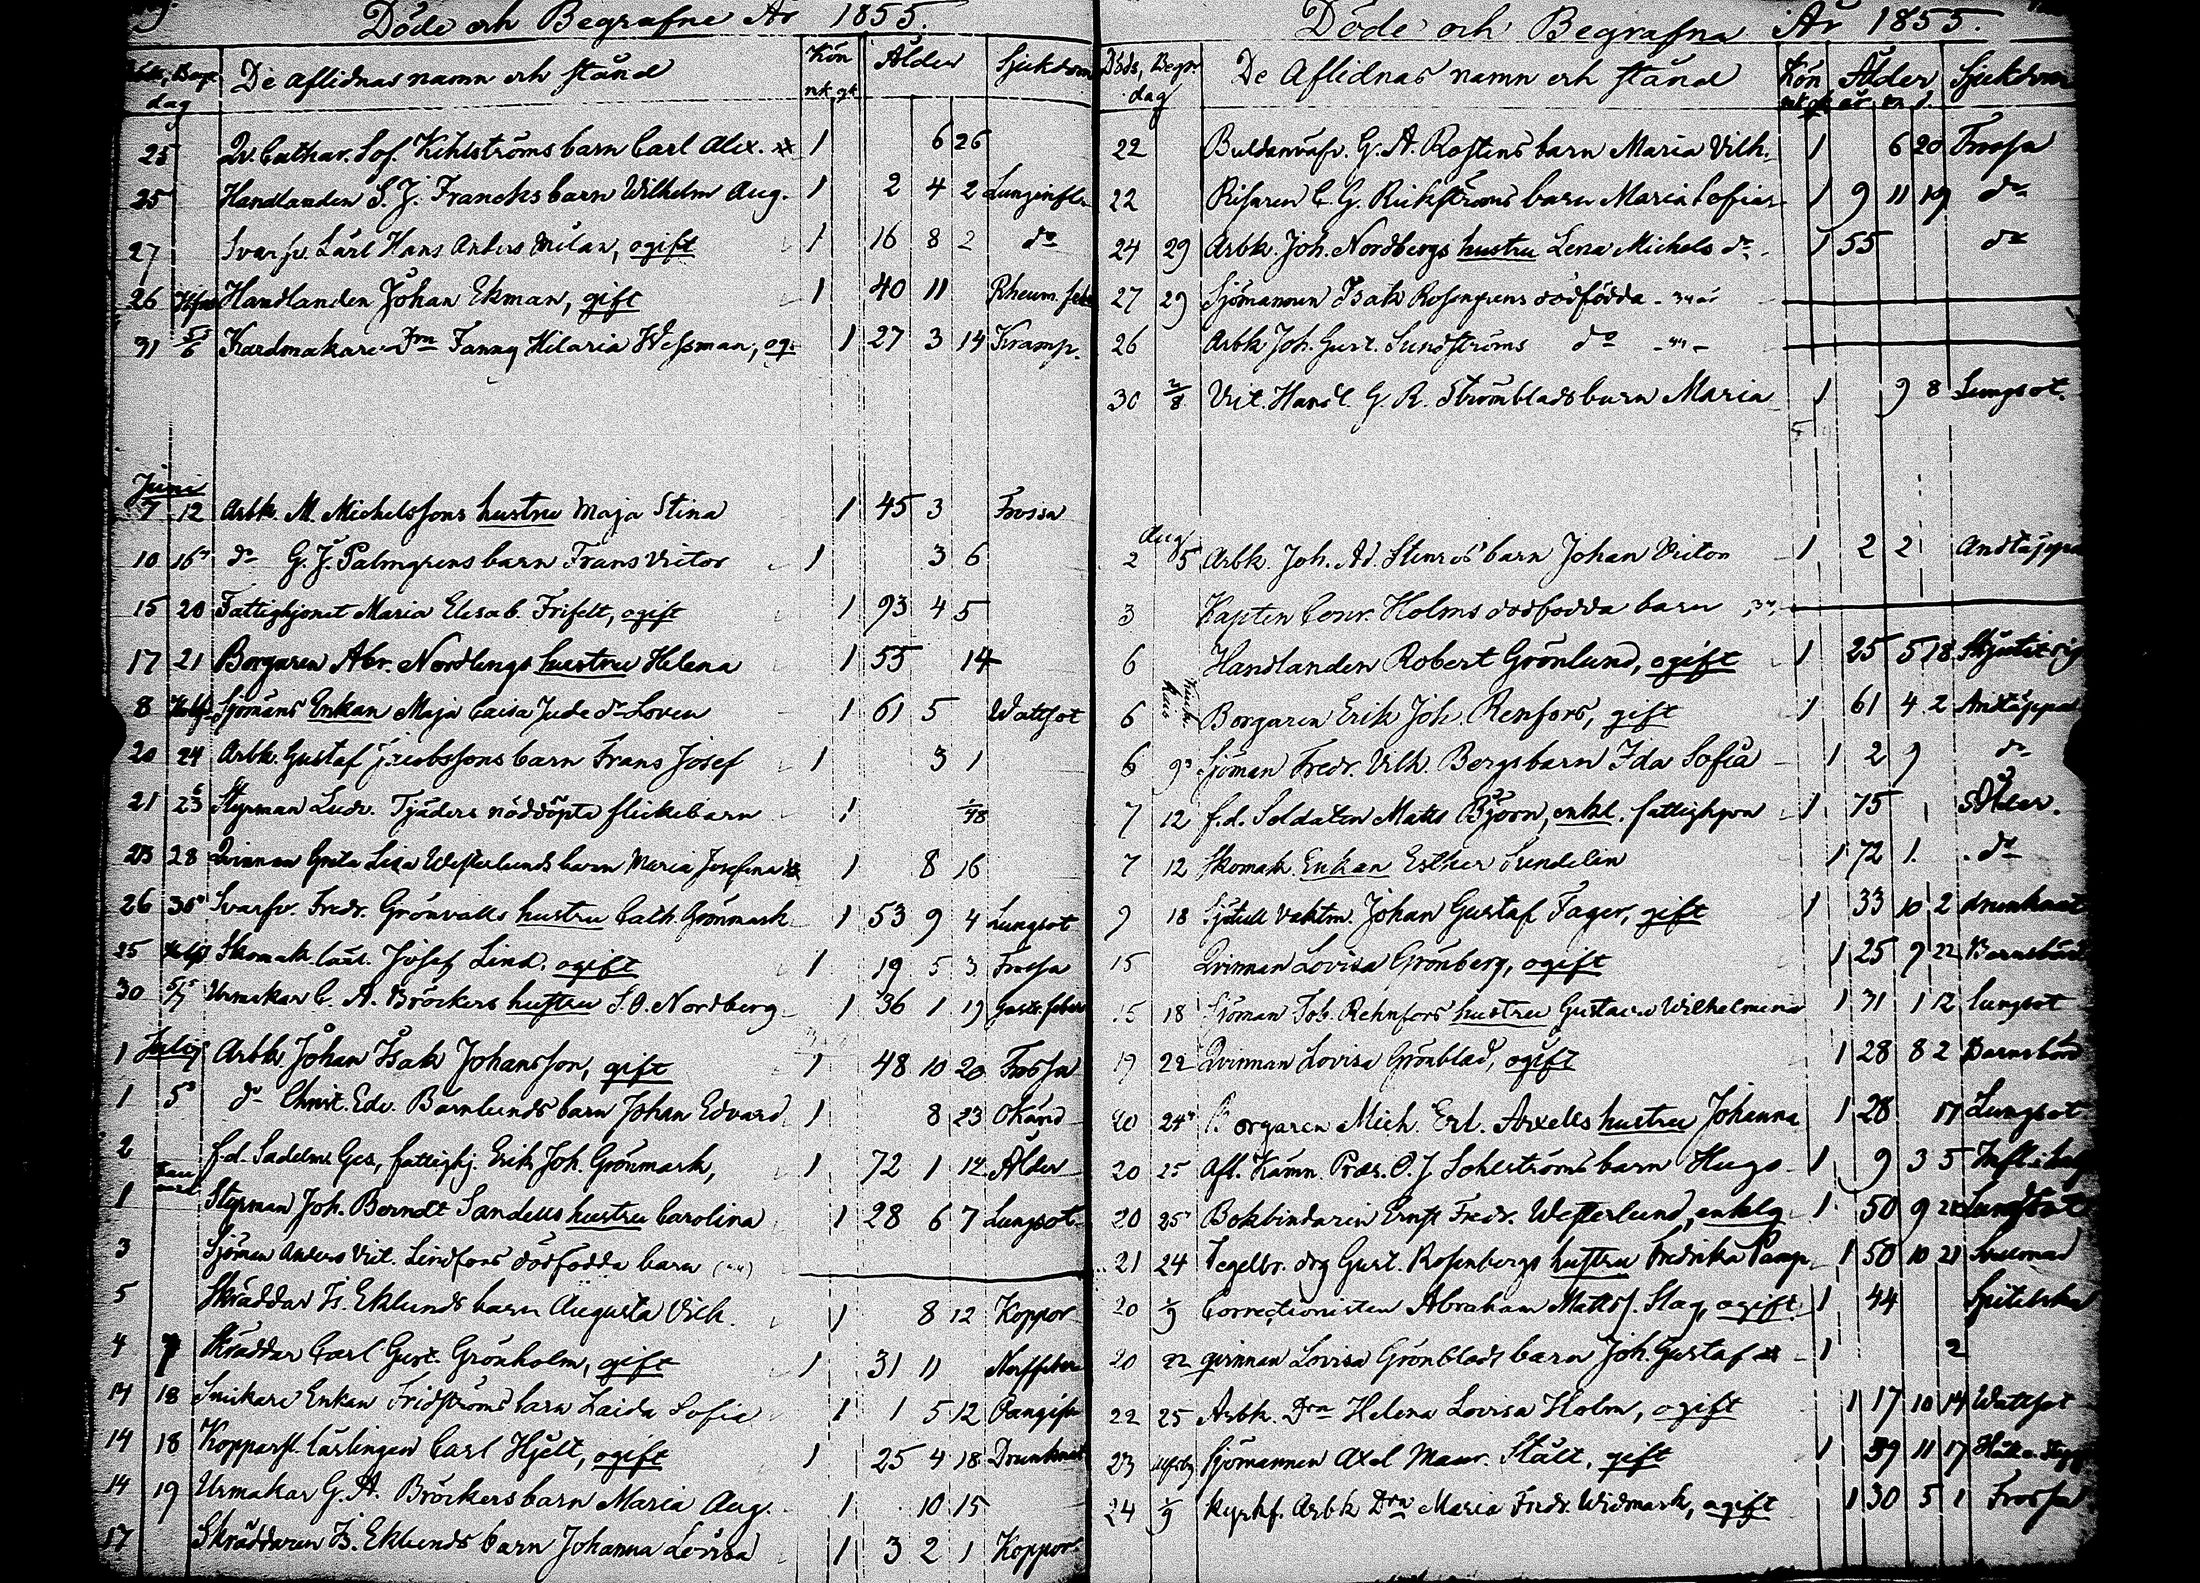 Döde och Begrafne År 1855.
Döds, Begr. dag De aflidnas namn och stånd Kön mk. qk. Ålder Sjukdom
25 Qv. Cathar. Sof. Kihlströms barn Carl Alex. 1 6 26
25 Handlanden S. J. Francks barn Wilhelm Aug. 1 2 4 2 Lunginfl.
27 Svarfv. Lärl Hans Anders Milan, ogift 1 16 8 2 do
26 Handlanden Johan Ekman, gift 1 40 11 Rheum. feb
31 5/6 Kardmakare Drn Fanny Hilaria Wessman, og. 1 27 3 14 Kramp.
Juni
7 12 Arbk. M. Michelssons hustru Maja Stina 1 45 3 Frossa
10 16 do G. J. Palmgrens barn Frans Victor 1 3 6
15 20 Fattighjonet Maria Elisab. Frifelt, ogift 1 93 4 5
17 21 Borgaren Abr. Nordlings hustru Helena 1 55 14
8 Sjömans Enkan Maja Caisa Jude do Loven 1 61 5 Wattsot
20 24 Arbk. Gustaf Jacobssons barn Frans Josef 1 3 1
21 23 Styrman Ludv. Tjäders nöddöpta flickebarn 1 1/48
23 28 Qvinnan Greta Lisa Westerlunds barn Maria Josefina 1 8 16
26 30 Svarfv. Fredr. Grönvalls hustru Cath. Grönmark 1 53 9 4 Lungsot
25 Skomak. lärl. Josef Lind, ogift 1 19 5 3 Frossa
30 5/7 Urmakar C. A. Bröckers hustru S. O. Nordberg 1 36 1 19 Gastr. feber
July
1 Arbk. Johan Isak Johansson, gift 1 48 10 20 Frossa
1 5 do Christ. Edv. Barnlunds barn Johan Edvard 1 8 23 Okänd
2 f.d. Sadelm. Ges, fattighj. Erik Joh. Grönmark, 1 72 1 12 Ålder
1 Styrman Joh. Berndt Sandells hustru Carolina 1 28 6 7 Lungsot
3 Sjöman Anders Vict. Lindfors dödfödda barn
5 Skräddar Is. Eklunds barn Augusta Vilh. 1 8 12 Koppor
4 7 Skräddar Carl Gust. Grönholm, gift 1 31 11 Nerffeber
14 18 Snickare Enkan Fridströms barn Laida Sofia 1 1 5 12
14 18 Kopparsl. lärlingen Carl Hjelt, ogift 1 25 4 18 Drunknat
14 19 Urmakar G. A. Bröckers barn Maria Aug. 1 10 15
17 Skräddaren Is. Eklunds barn Johanna Lovisa 1 3 2 1 Koppor
Döde och Begrafna År 1855.
Döds, Begr. dag De Aflidnas namn och stånd Kön mk qk Ålder år m d Sjukdom
22 G. A. Rostens barn Maria Vilh. 1 6 20 Frossa
22 C. G. Rickströms barn Maria Sofia 1 9 11 19 do
24 29 Arbk. Joh. Nordbergs hustru Lena Michels do 1 55 do
27 29 Sjömannen Isak Rosengrens dödfödda
26 Arbk Joh. Gust. Sundströms do
30 2/8 Vict. Handl. G. R. Strömblads barn Maria 1 9 8 Lungsot.
Aug.
2 5 Arbk. Joh. Ad. Stenros barn Johan Victor 1 2 2 Andtäppa
3 Kapten Conr. Holms dödfödda barn
6 Handlanden Robert Grönlund, ogift 1 25 5 18 Skjutit sig
6 Borgaren Erik Joh. Renfors, gift 1 61 4 2 Andtäppa
6 9 Sjöman Fredr. Vilh. Bergs barn Ida Sofia 1 2 9 do
7 12 f.d. Soldaten Matts Björn, enkl. fattighjon 1 75 Ålder.
7 12 Skomak. Enkan Esther Sundelin 1 72 1 do
9 18 Sjötull Vaktm. Johan Gustaf Fager, gift 1 33 10 2 drunknat
15 Qvinnan Lovisa Grönberg, ogift 1 25 9 22 Barnsbörd
15 18 Sjöman Joh. Rehnfors hustru Gustava Wilhelmina 1 31 1 12 Lungsot
19 22 Qvinnan Lovisa Grönblad, ogift 1 28 8 2 Barnsbörd
20 24 Borgaren Mich. Erl. Axells hustru Johanna 1 28 17 Lungsot
20 25 Afl. Kämn. Præs. O. J. Sohlströms barn Hugo 1 9 3 5
20 25 Bokbindaren Ernst Fredr. Westerlund, enkling 1 50 9 Lungsot
21 24 Tegelbr. drg Gust. Rosenbergs hustru Fredrika Pamp 1 50 10 21
20 1/9 Correctionisten Abraham Mattss. Slag, ogift 1 44 Spitelska
20 22 qvinnan Lovisa Grönblads barn Joh. Gustaf 1 2
22 25 Arbk. Drn Helena Lovisa Holm, ogift 1 17 10 14 Wattsot
23 Sjömannen Axel Maur. Stålt, gift 1 39 11 17
24 1/9 Kyrkf. Arbk Drn Maria Fredr. Widmark, ogift 1 30 5 1 Frossa